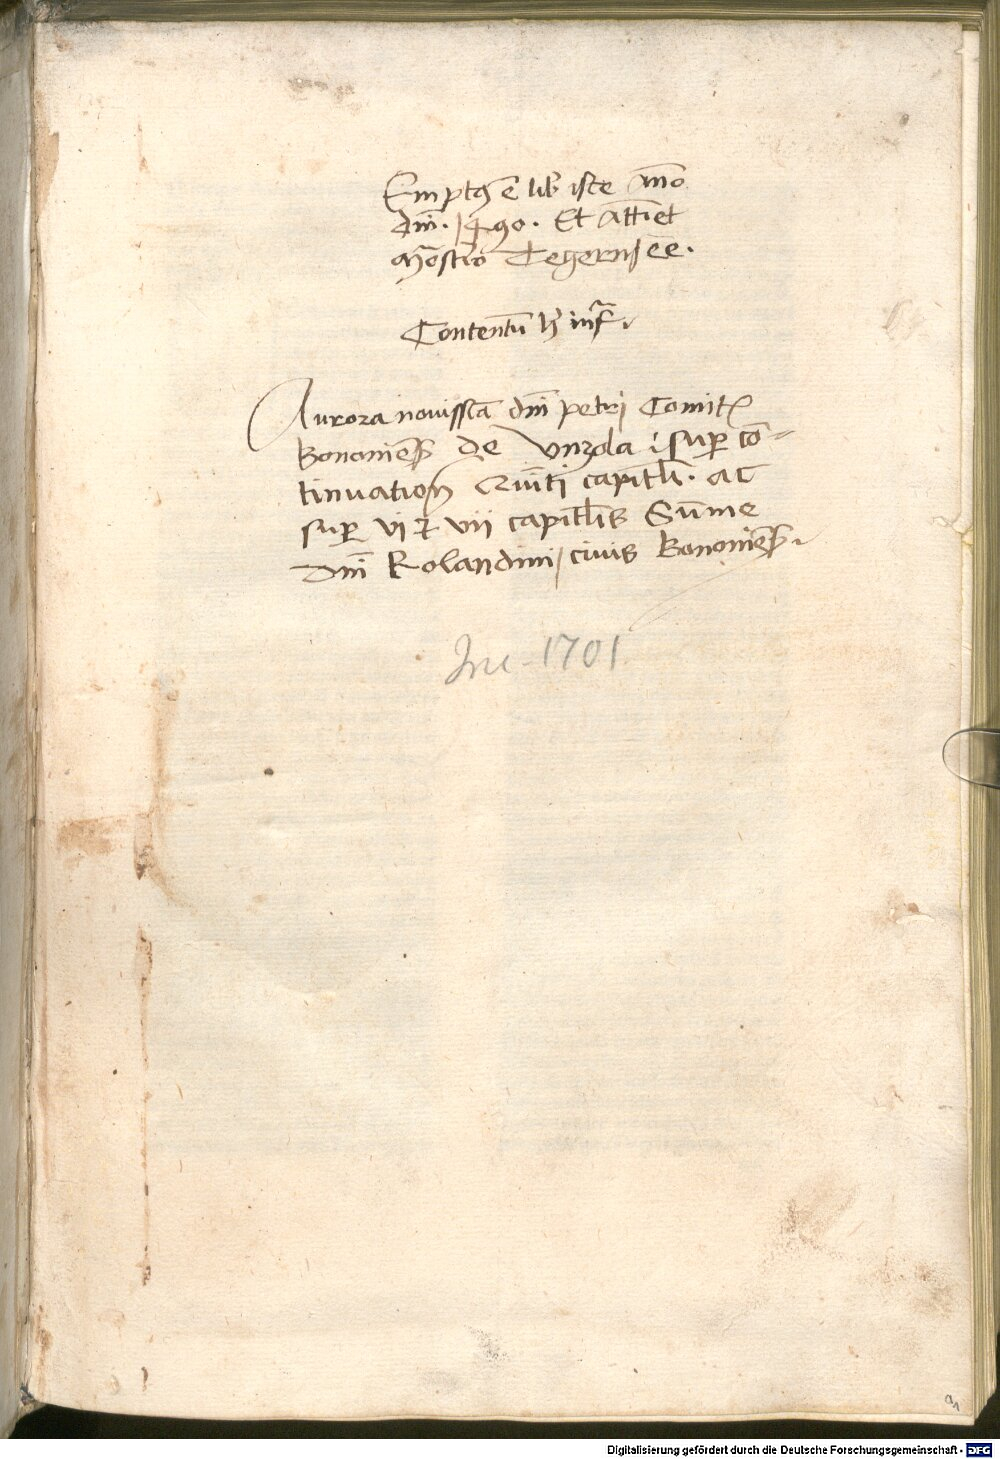 Emptꝰ ē lib iste Anno
dnī. 1490. Et attīet
Mōstio Tegernsēe.
Contentū hꝰ infra.
Aurora novissīa dnī petri Comitꝭ
Bononieñ de Unzola: sup cō-
tinuation quīti capitli. ac
sup vi et vii capitlis Sūme
Dnī Rolandini / civis Bononieñ.
Inc. 1701.
a1
Digitalisierung gefördert durch die Deutsche Forschungsgemeinschaft - DFG